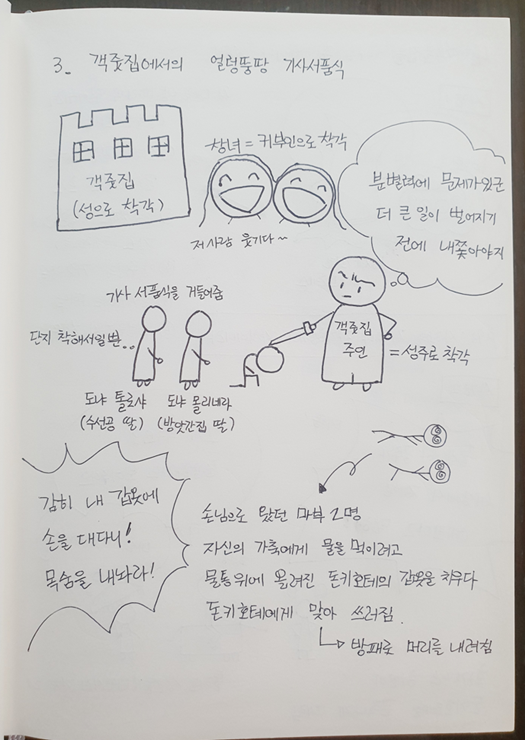 3_ 객줏집에서의 얼렁뚱땅 기사서품식
객줏집
(성으로 착각)
창녀 = 귀부인으로 착각
저사람 웃기다~
분별력에 문제가있군
더 큰일이 벌어지기
전에 내쫓아야지
기사 서품식을 거들어줌
단지 착해서일뿐..
도냐 톨로사
(수선공 딸)
도냐 몰리네라
(방앗간집 딸)
객줏집
주인
= 성주로 착각
감히 내 갑옷에
손을 대다니!
목숨을 내놔라!
손님으로 왔던 마부 2명
자신의 가축에게 물을 먹이려고
물통위에 올려진 돈키호테의 갑옷을 치우다
돈키호테에게 맞아 쓰러짐.
방패로 머리를 내려침